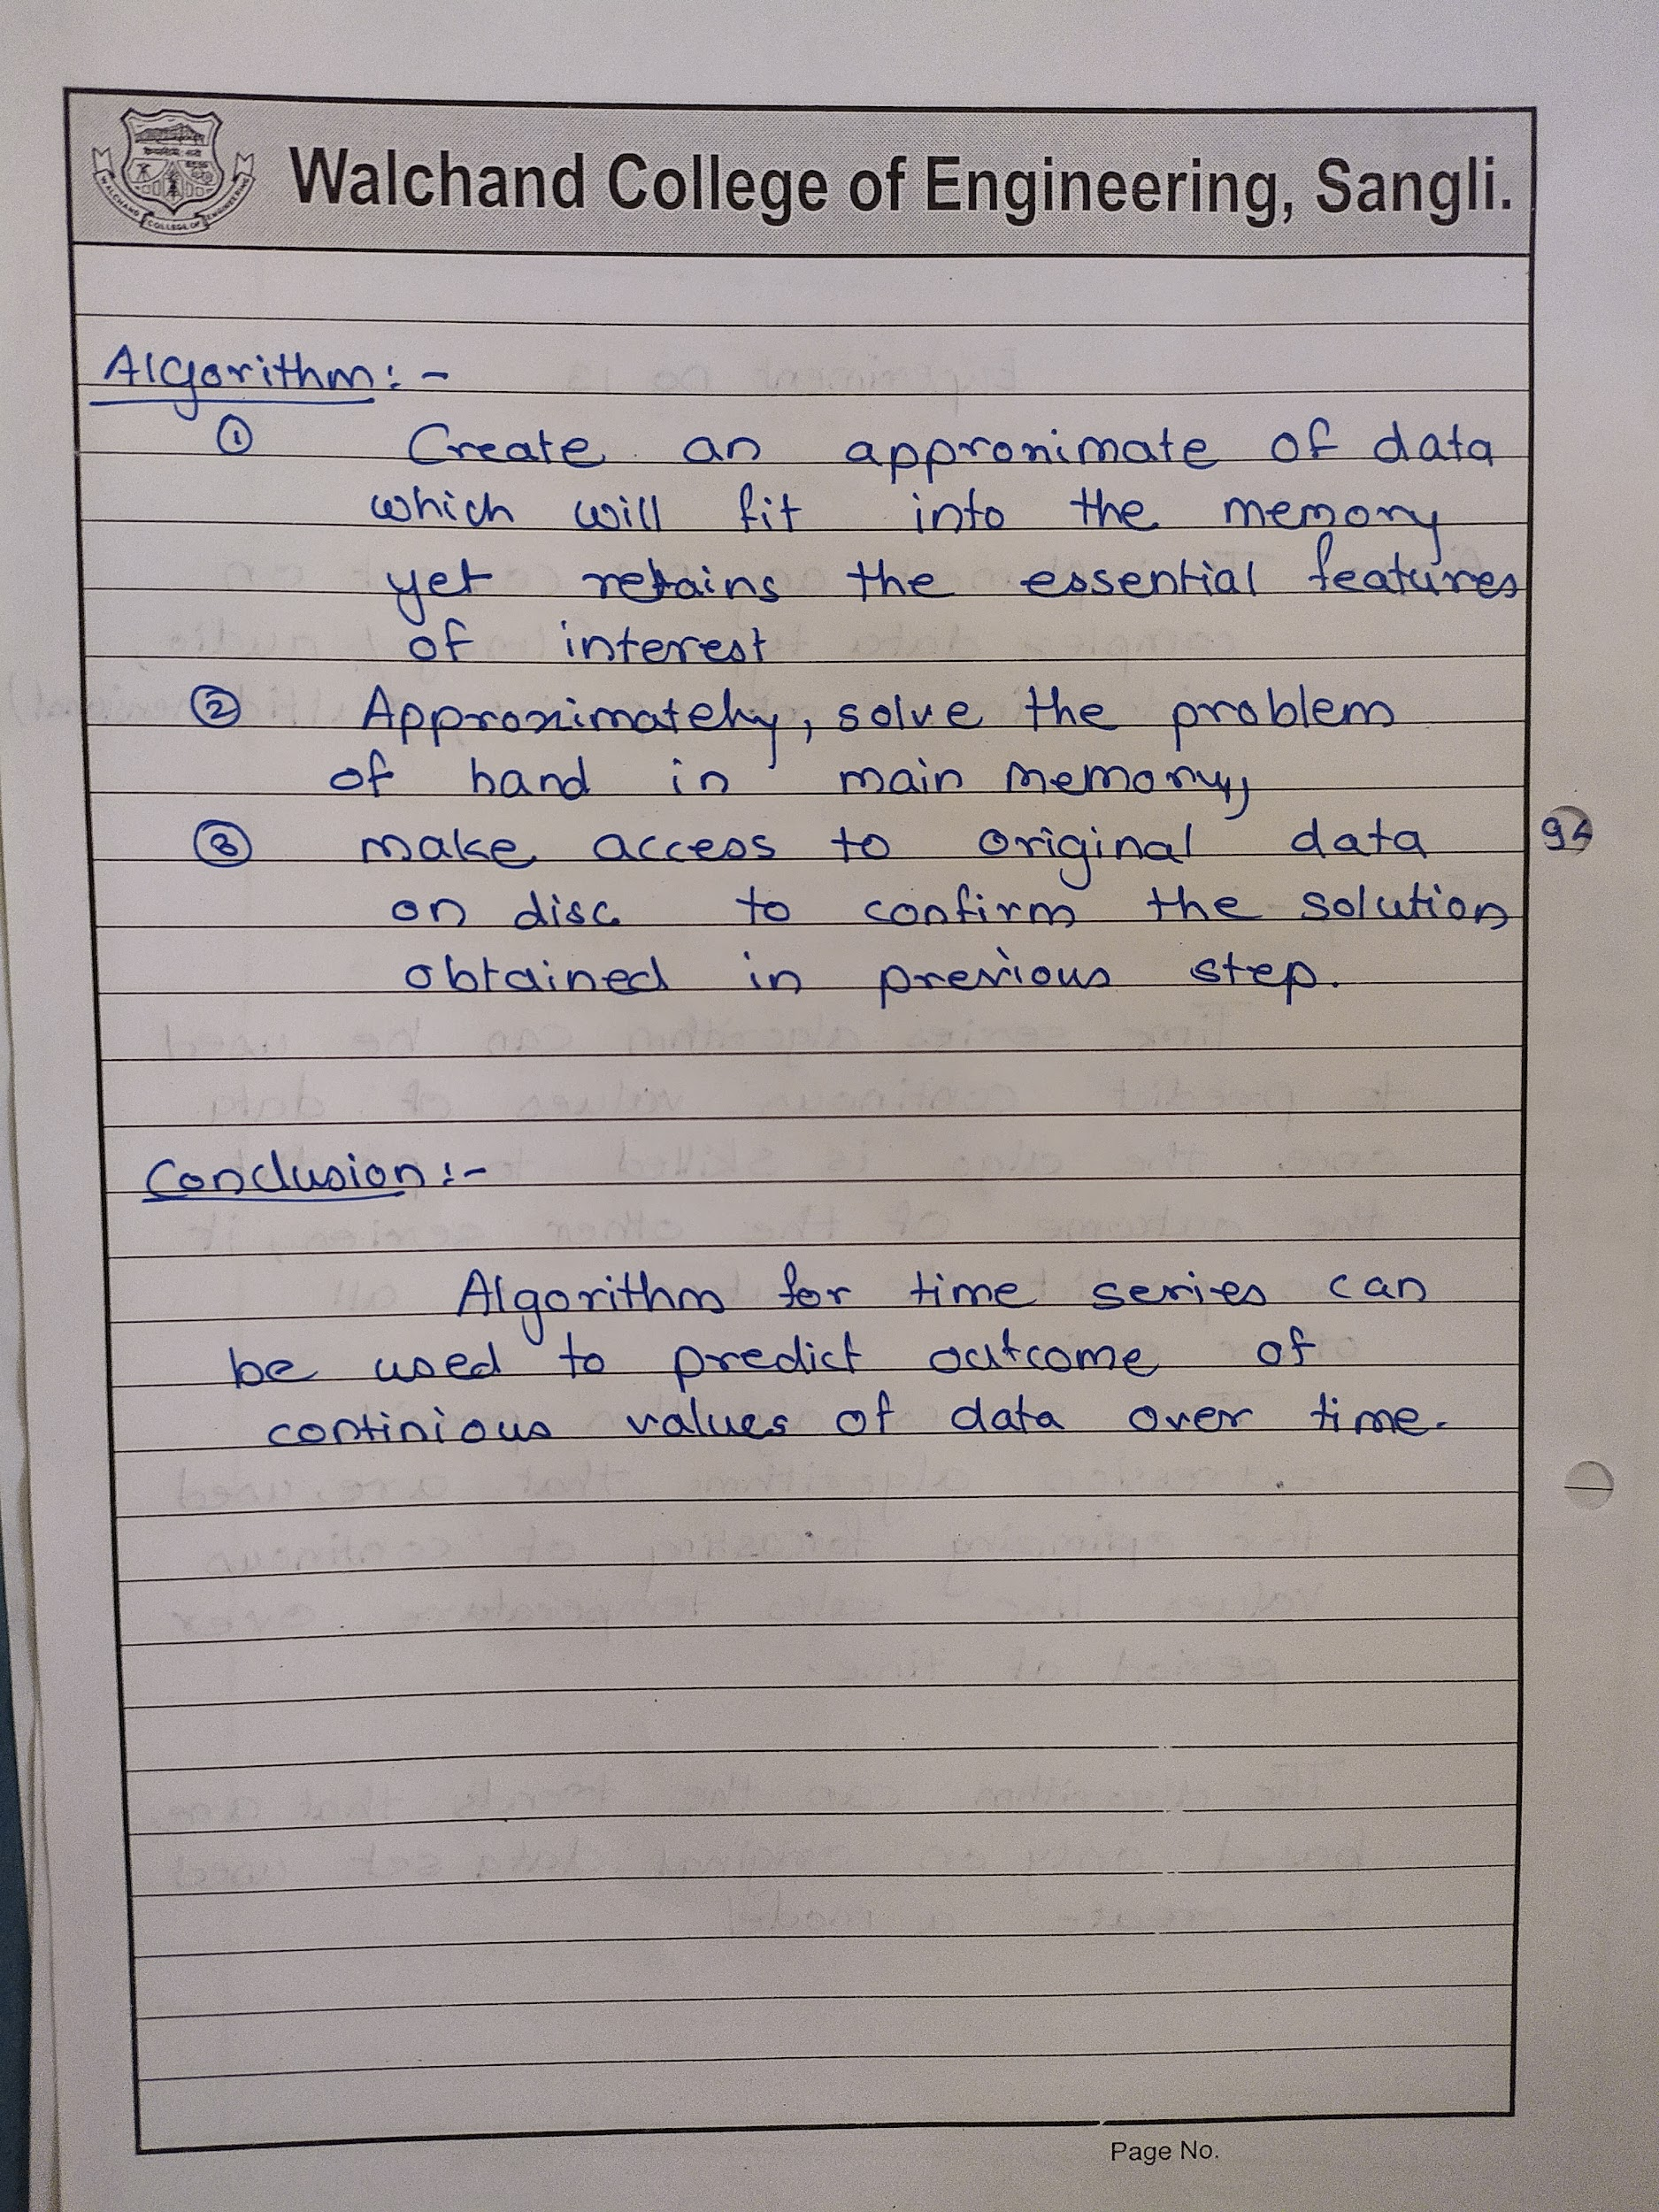 Walchand College of Engineering, Sangli.
WALCHAND COLLEGE OF ENGINEERING
Algorithm:-
① Create an approximate of data
which will fit into the memory
yet retains the essential features
of interest
② Approximately, solve the problem
of hand in main memory,
③ make access to original data
on disc to confirm the solution
obtained in previous step.
Conclusion:-
Algorithm for time series can
be used to predict outcome of
continious values of data over time.
Page No.